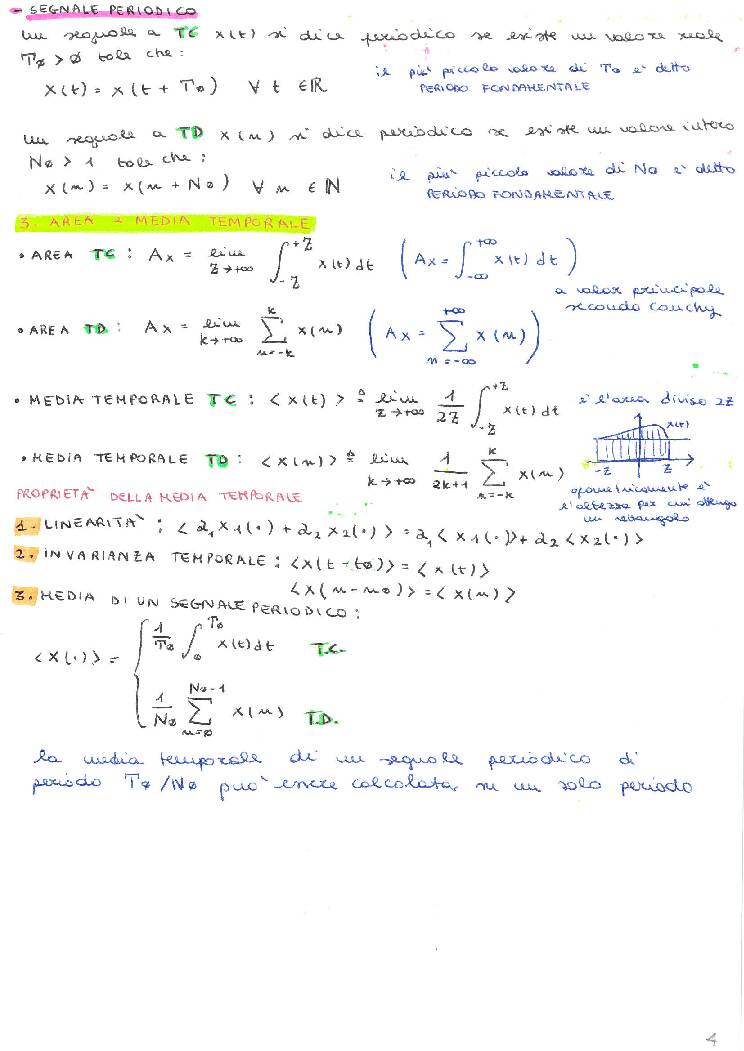 - SEGNALE PERIODICO
un segnale a TC x(t) si dice periodico se esiste un valore reale
T∅ > ∅ tale che:
x(t) = x(t + T∅) ∀ t ∈ ℝ
il più piccolo valore di T0 è detto
PERIODO FONDAMENTALE
un segnale a TD x(n) si dice periodico se esiste un valore intero
N∅ > 1 tale che:
x(n) = x(n + N∅) ∀ n ∈ ℕ
il più piccolo valore di N0 è detto
PERIODO FONDAMENTALE
3. AREA E MEDIA TEMPORALE
• AREA TC : Ax = lim Z→+∞ ∫-Z+Z x(t) dt (Ax = ∫-∞+∞ x(t) dt)
a valor principale
secondo Cauchy
• AREA TD : Ax = lim k→+∞ Σ n=-k k x(n) (Ax = Σ n=-∞ +∞ x(n))
• MEDIA TEMPORALE TC : < x(t) > ≜ lim Z→+∞ 1/2Z ∫-Z+Z x(t) dt
è l'area diviso 2Z
x(t)
-Z Z
• MEDIA TEMPORALE TD : < x(n) > ≜ lim k→+∞ 1/2k+1 Σ n=-k k x(n)
geometricamente è
l'altezza per cui ottengo
un rettangolo
PROPRIETÀ DELLA MEDIA TEMPORALE
1. LINEARITÀ : < a1 x1(·) + a2 x2(·) > = a1 < x1(·) > + a2 < x2(·) >
2. INVARIANZA TEMPORALE : <x(t - t∅)> = < x(t) >
<x(n - n∅)> = < x(n) >
3. MEDIA DI UN SEGNALE PERIODICO :
< x(·) > = { 1/T∅ ∫∅T∅ x(t) dt T.C.
1/N∅ Σ n=∅ N∅-1 x(n) T.D.
la media temporale di un segnale periodico di
periodo T∅/N∅ può essere calcolata su un solo periodo
4